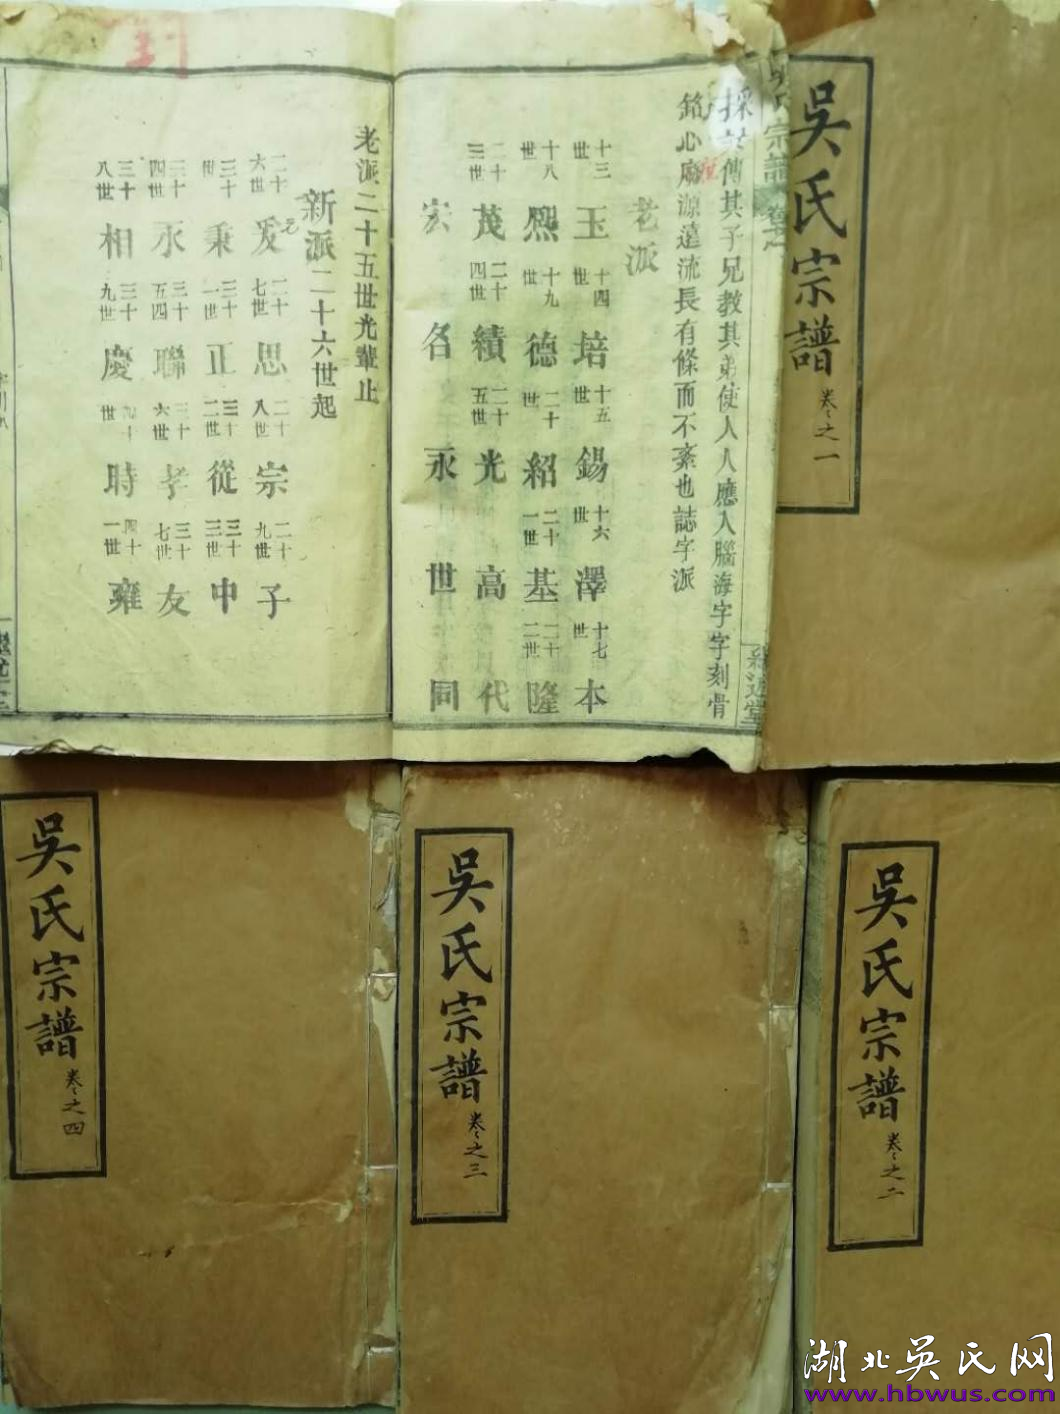 吳氏宗譜 卷之一
採其傳其子兄教其弟使人人應入腦海字字刻骨
銘心庶源遠流長有條而不紊也誌字派
老派
十三世 玉 十四世 培 十五世 錫 十六世 澤 十七世 本
十八世 熈 十九世 德 二十世 紹 二十一世 基 二十二世 隆
二十三世 茂 二十四世 績 二十五世 光 高 代
宏 名 永 世 同
老派二十五世光輩止
新派二十六世起
二十六世 爰 二十七世 思 二十八世 宗 二十九世 子
三十世 秉 三十一世 正 三十二世 從 三十三世 中
三十四世 永 三十五世 聯 三十六世 孝 三十七世 友
三十八世 相 三十九世 慶 四十世 時 四十一世 雍
吳氏宗譜 卷之二
吳氏宗譜 卷之三
吳氏宗譜 卷之四
湖北吴氏网
www.hbwus.com